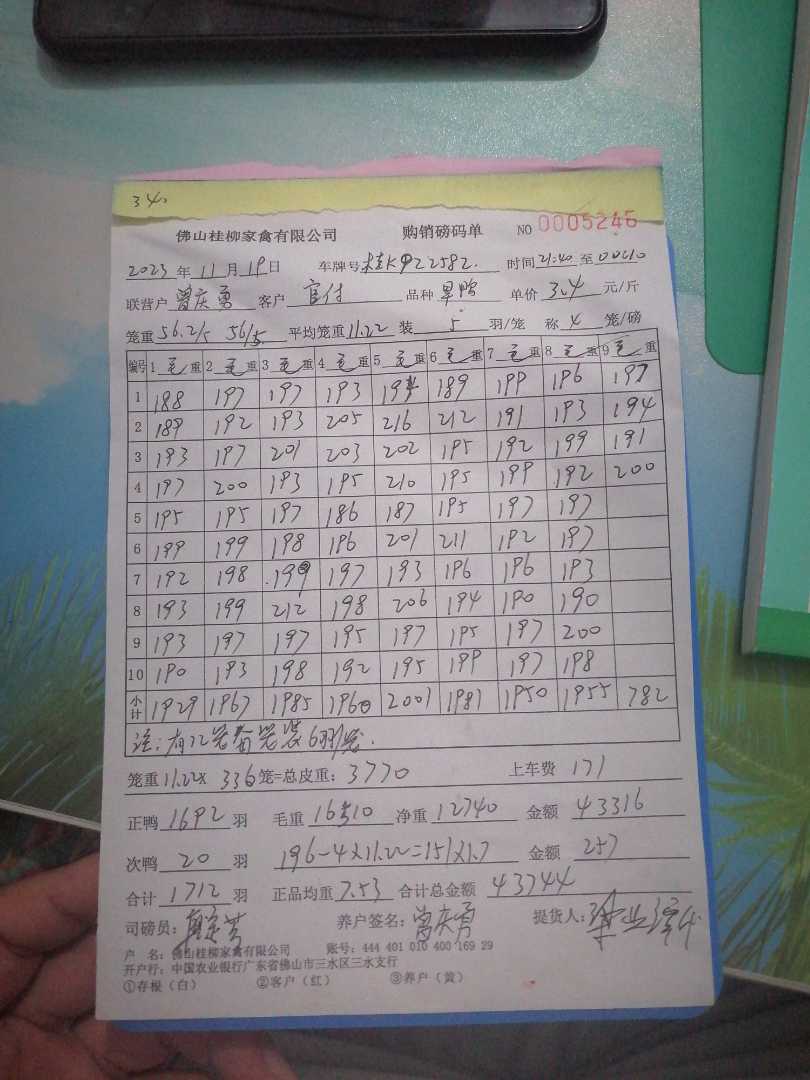 340
佛山桂柳家禽有限公司 购销磅码单 NO 0005246
2023年11月19日 车牌号 桂KP22582 时间 21:40 至 00:10
联营户 曾庆勇 客户 官付 品种 单价 3.4 元/斤
笼重 56.2/5 56/5 平均笼重 11.22 装 5 羽/笼 称 4 笼/磅
编号 1 毛重 2 毛重 3 毛重 4 毛重 5 毛重 6 毛重 7 毛重 8 毛重 9 毛重
1 188 197 197 193 194 189 199 196 197
2 189 192 193 205 216 212 191 193 194
3 193 197 201 203 202 195 192 199 191
4 197 200 193 195 210 195 199 192 200
5 195 195 197 186 187 195 197 197
6 199 199 198 196 201 211 192 197
7 192 198 199 197 193 196 196 193
8 193 199 212 198 206 194 190 190
9 193 197 197 195 197 195 197 200
10 190 193 198 192 195 199 197 198
小计 1929 1967 1985 1960 2001 1981 1950 1955 782
注:有12笼 笼装6羽/笼.
笼重 11.22× 336 笼=总皮重: 3770 上车费 171
正鸭 1692 羽 毛重 16510 净重 12740 金额 43316
次鸭 20 羽 196-4×11.22=151×1.7 金额 257
合计 1712 羽 正品均重 7.53 合计总金额 43744
司磅员: 养户签名: 曾庆勇 提货人:
户 名: 佛山桂柳家禽有限公司 账号: 444 401 010 400 169 29
开户行: 中国农业银行广东省佛山市三水区三水支行
①存根(白) ②客户(红) ③养户(黄)